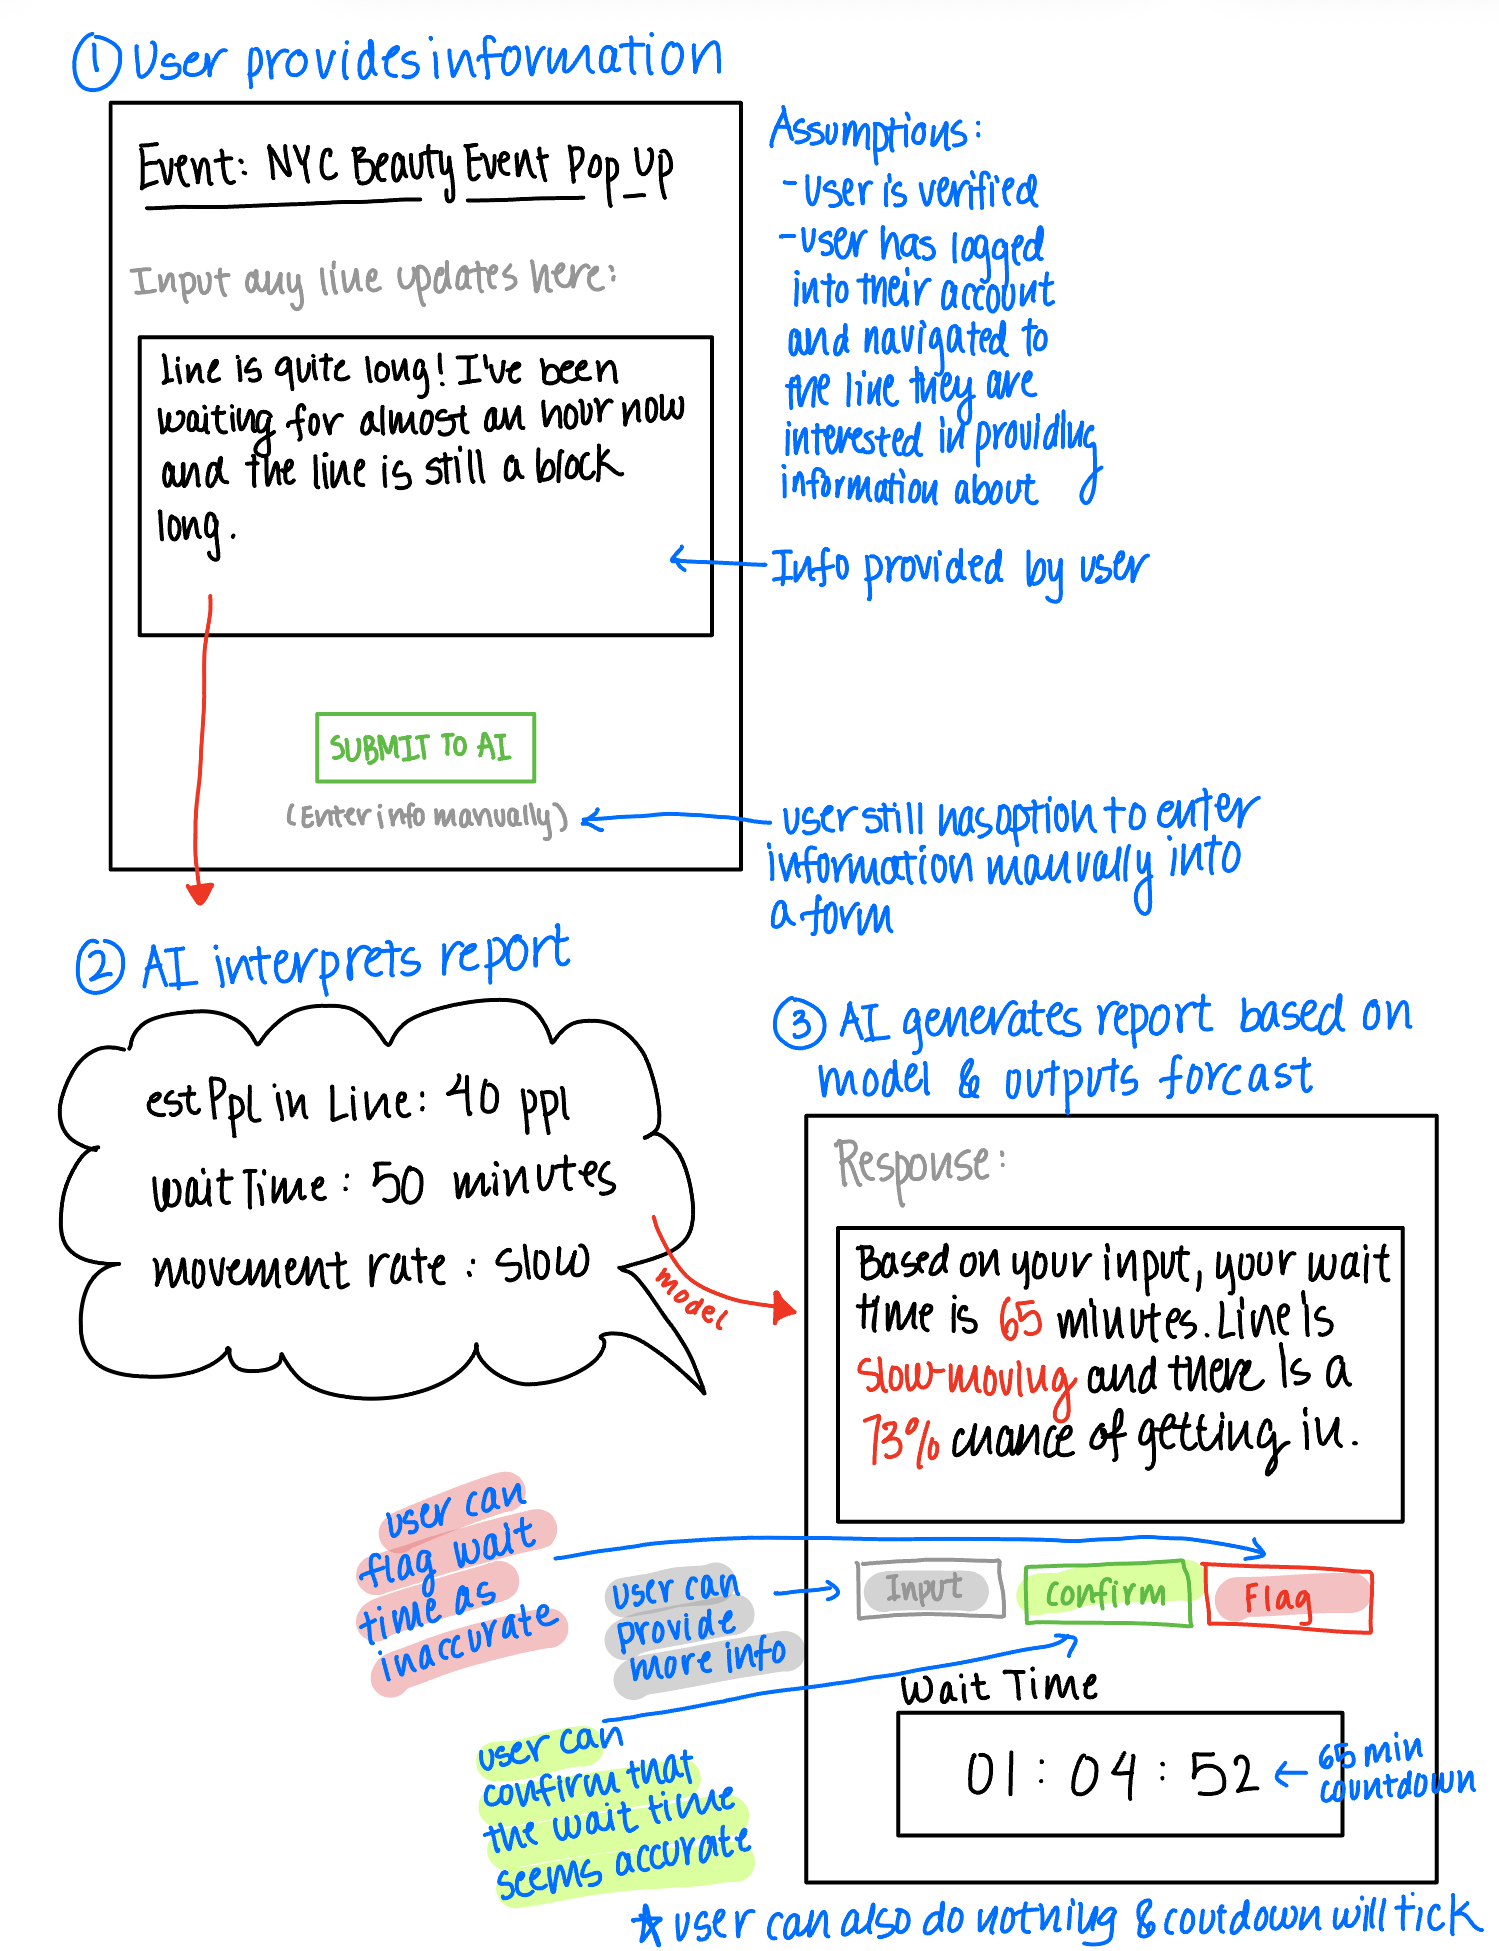 ① User provides information
Event: NYC Beauty Event Pop Up
Input any line updates here:
line is quite long! I've been
waiting for almost an hour now
and the line is still a block
long.
SUBMIT TO AI
(Enter info manually)
Assumptions:
- User is verified
- user has logged
into their account
and navigated to
the line they are
interested in providing
information about
Info provided by user
user still has option to enter
information manually into
a form
② AI interprets report
est Ppl in Line: 40 ppl
wait Time: 50 minutes
movement rate: slow
model
③ AI generates report based on
model & outputs forcast
Response:
Based on your input, your wait
time is 65 minutes. Line is
slow-moving and there is a
73% chance of getting in.
Input
Confirm
Flag
user can
flag wait
time as
inaccurate
user can
provide
more info
user can
confirm that
the wait time
seems accurate
Wait Time
01:04:52
65 min
countdown
* user can also do nothing & coutdown will tick